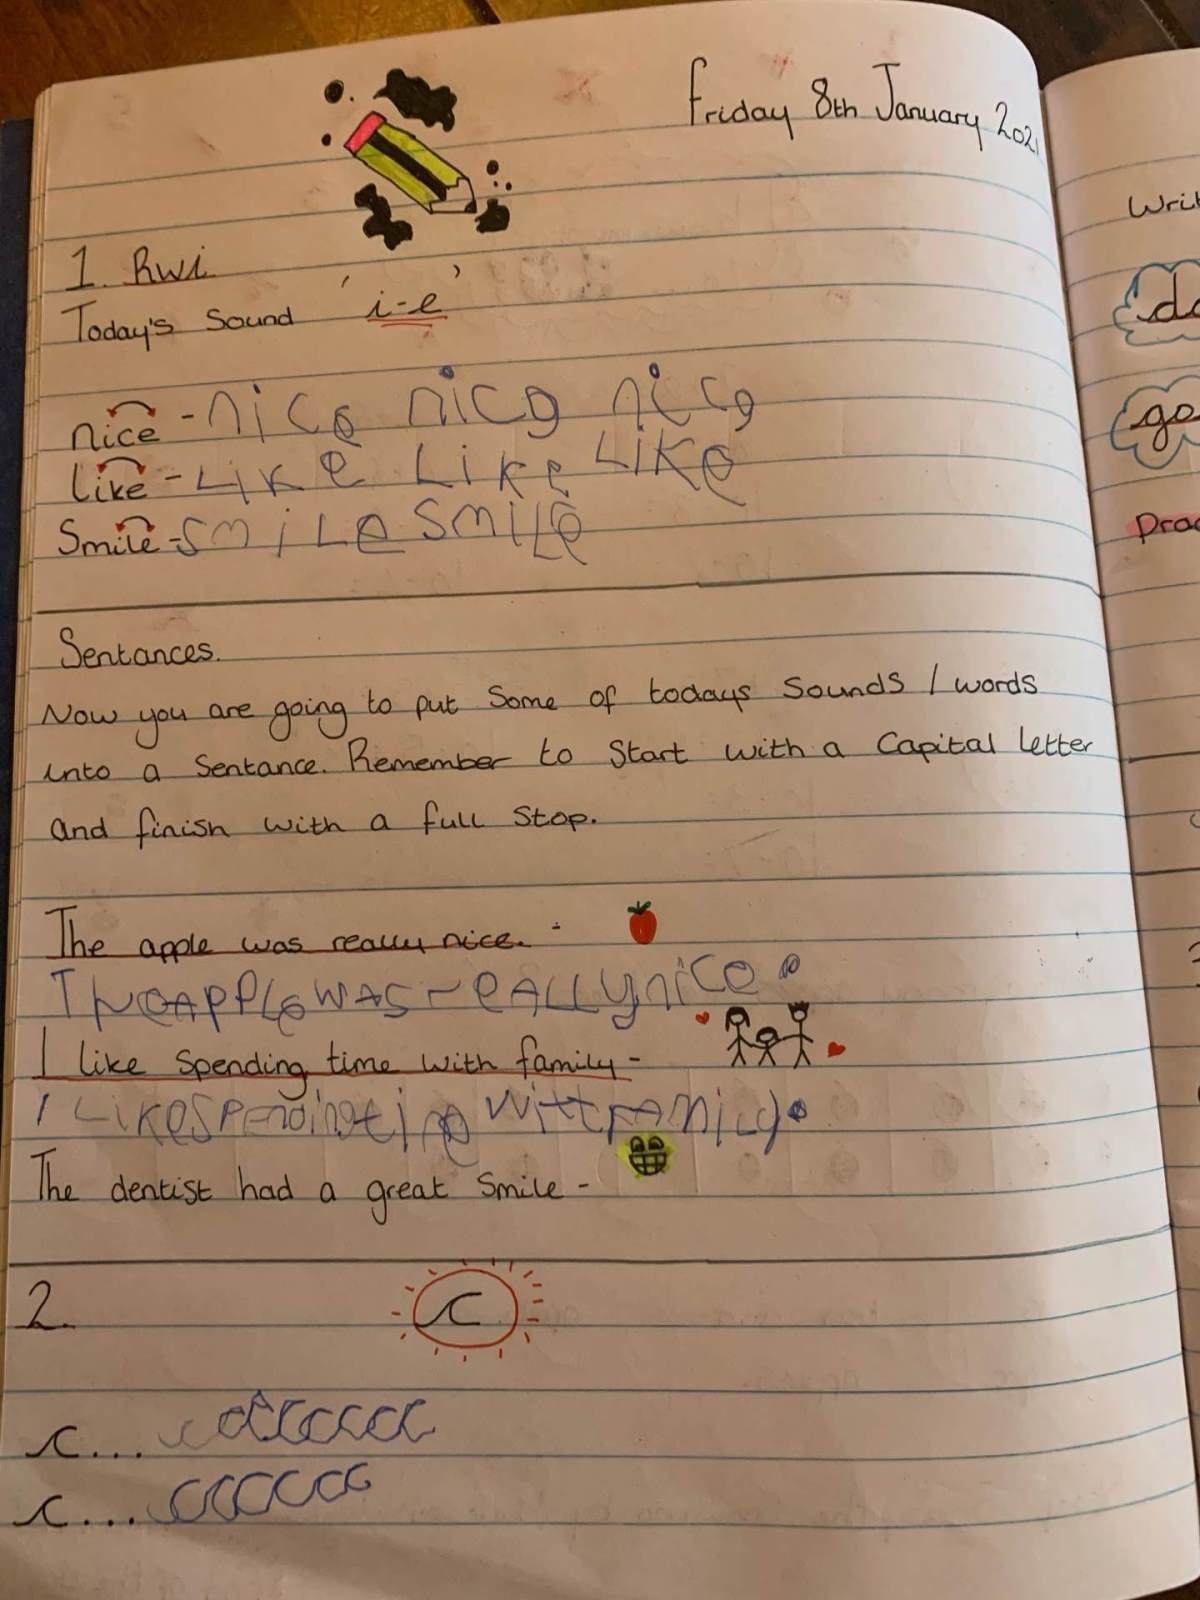 Friday 8th January 2021
1. Rwi
Today's Sound 'i-e'
nice - nice nice nice
Like - Like Like Like
Smile - smiLe smiLe
Sentances.
Now you are going to put some of todays sounds / words
into a Sentance. Remember to Start with a Capital Letter
and finish with a full stop.
The apple was really nice. -
The APPLe wAS reALLy nice.
I like spending time with family -
I Like spending tine with FAMiLy.
The dentist had a great smile -
2. c
c... c c c c c c c c
c... c c c c c c c
Writ
do
go
prac